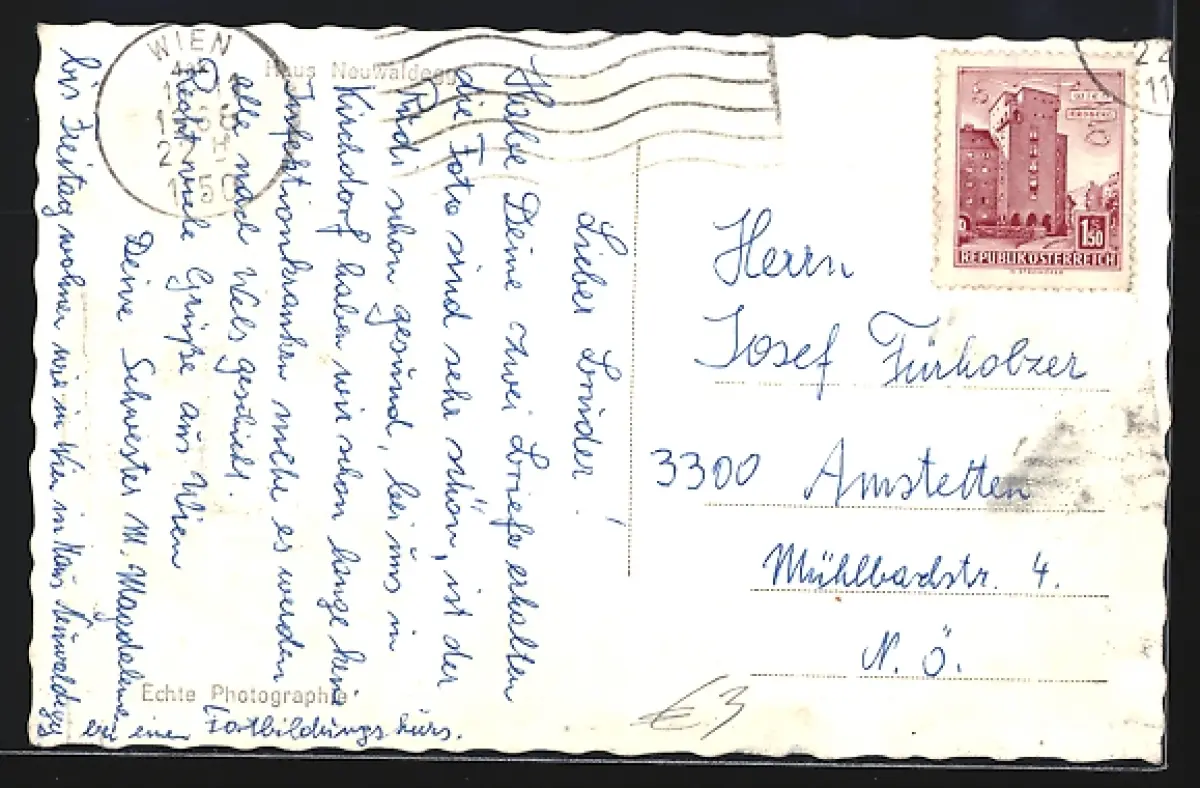 Haus Neuwaldegg
WIEN
Lieber Bruder!
Habe Deine zwei Briefe erhalten
die Foto sind sehr schön, ist der
Rudi schon gesund, bei uns in
Kirchdorf haben wir schon lange keine
Infektionskranken mehr es werden
alle nach Wels geschickt.
Recht viele Grüße aus Wien
Deine Schwester M. Magdalena
bis Freitag wohnen wir in Wien im Haus Neuwaldegg
bei einen Fortbildungskurs.
Echte Photographie
Herrn
Josef Fürholzer
3300 Amstetten
Mühlbachstr. 4.
N.Ö.
€ 3
WIEN
ERDBERG
1.50
REPUBLIK ÖSTERREICH
22
11